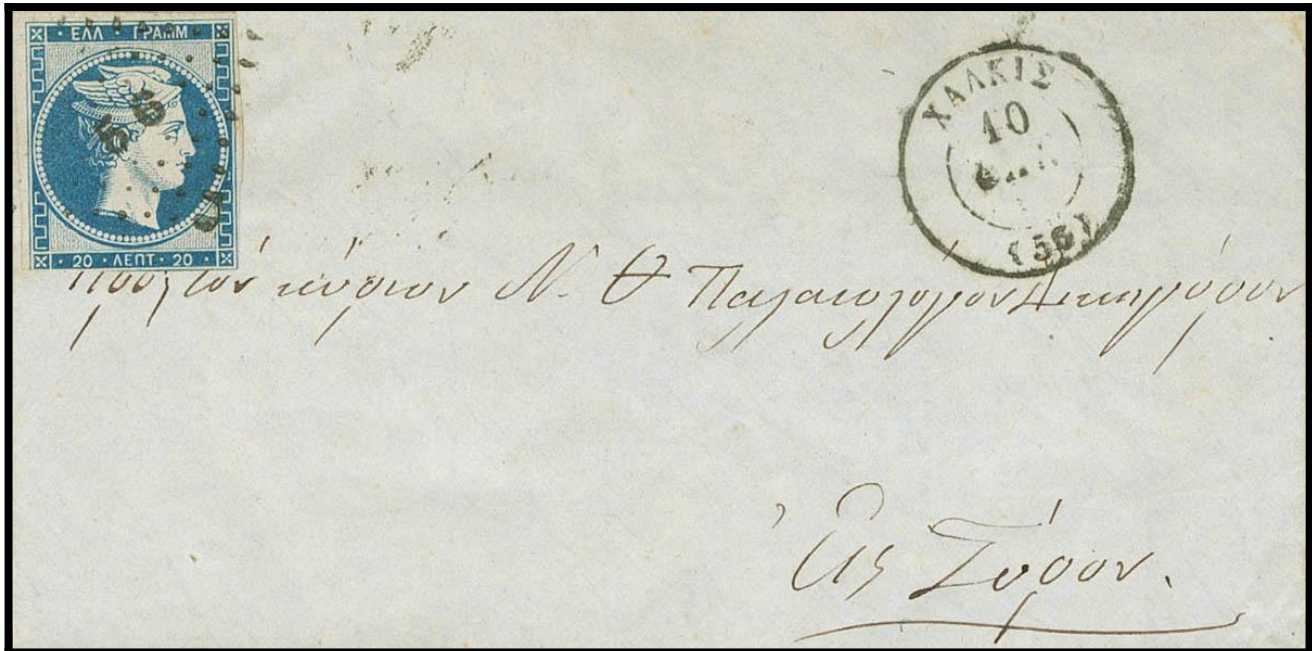 ΕΛΛ ΓΡΑΜΜ
56
20 · ΛΕΠΤ · 20
ΧΑΛΚΙΣ
10
(56)
Προς τον κύριον Ν. Θ Παλαιολόγον Δικηγόρον
Εις Σύρον.